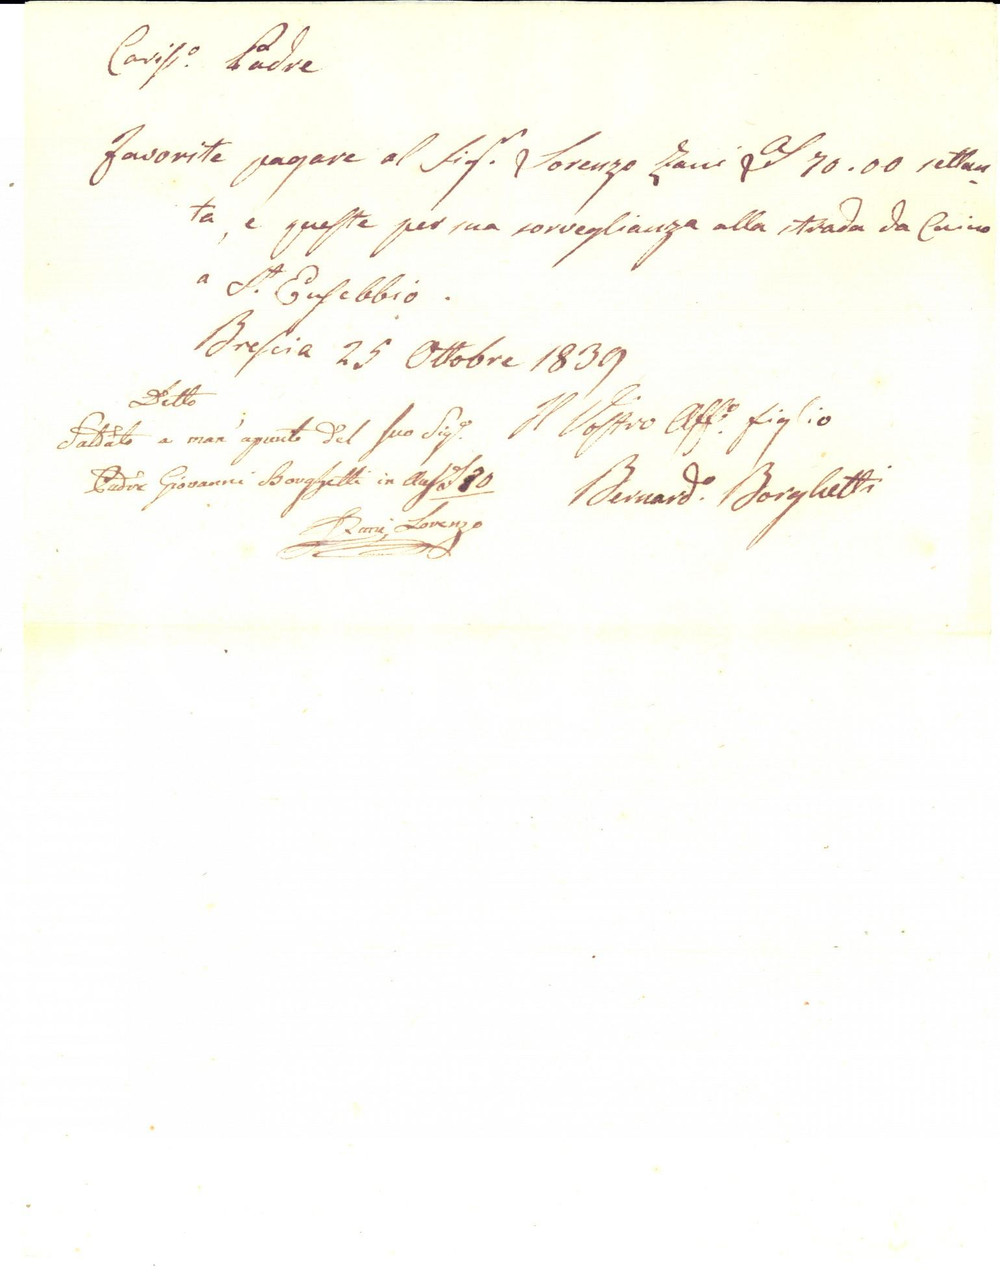 Cariss.º Padre
Favorite pagare al Sig.r Lorenzo Zani 70.00 settan-
ta, e queste per sua sorveglianza alla strada da Caino
a S.t Eusebbio.
Brescia 25 Ottobre 1839
Il Vostro Aff.º figlio
Bernard.º Borghetti
Detto
Saldato a man' del suo Sig.r
Padre Giovanni Borghetti in 70
Zani Lorenzo